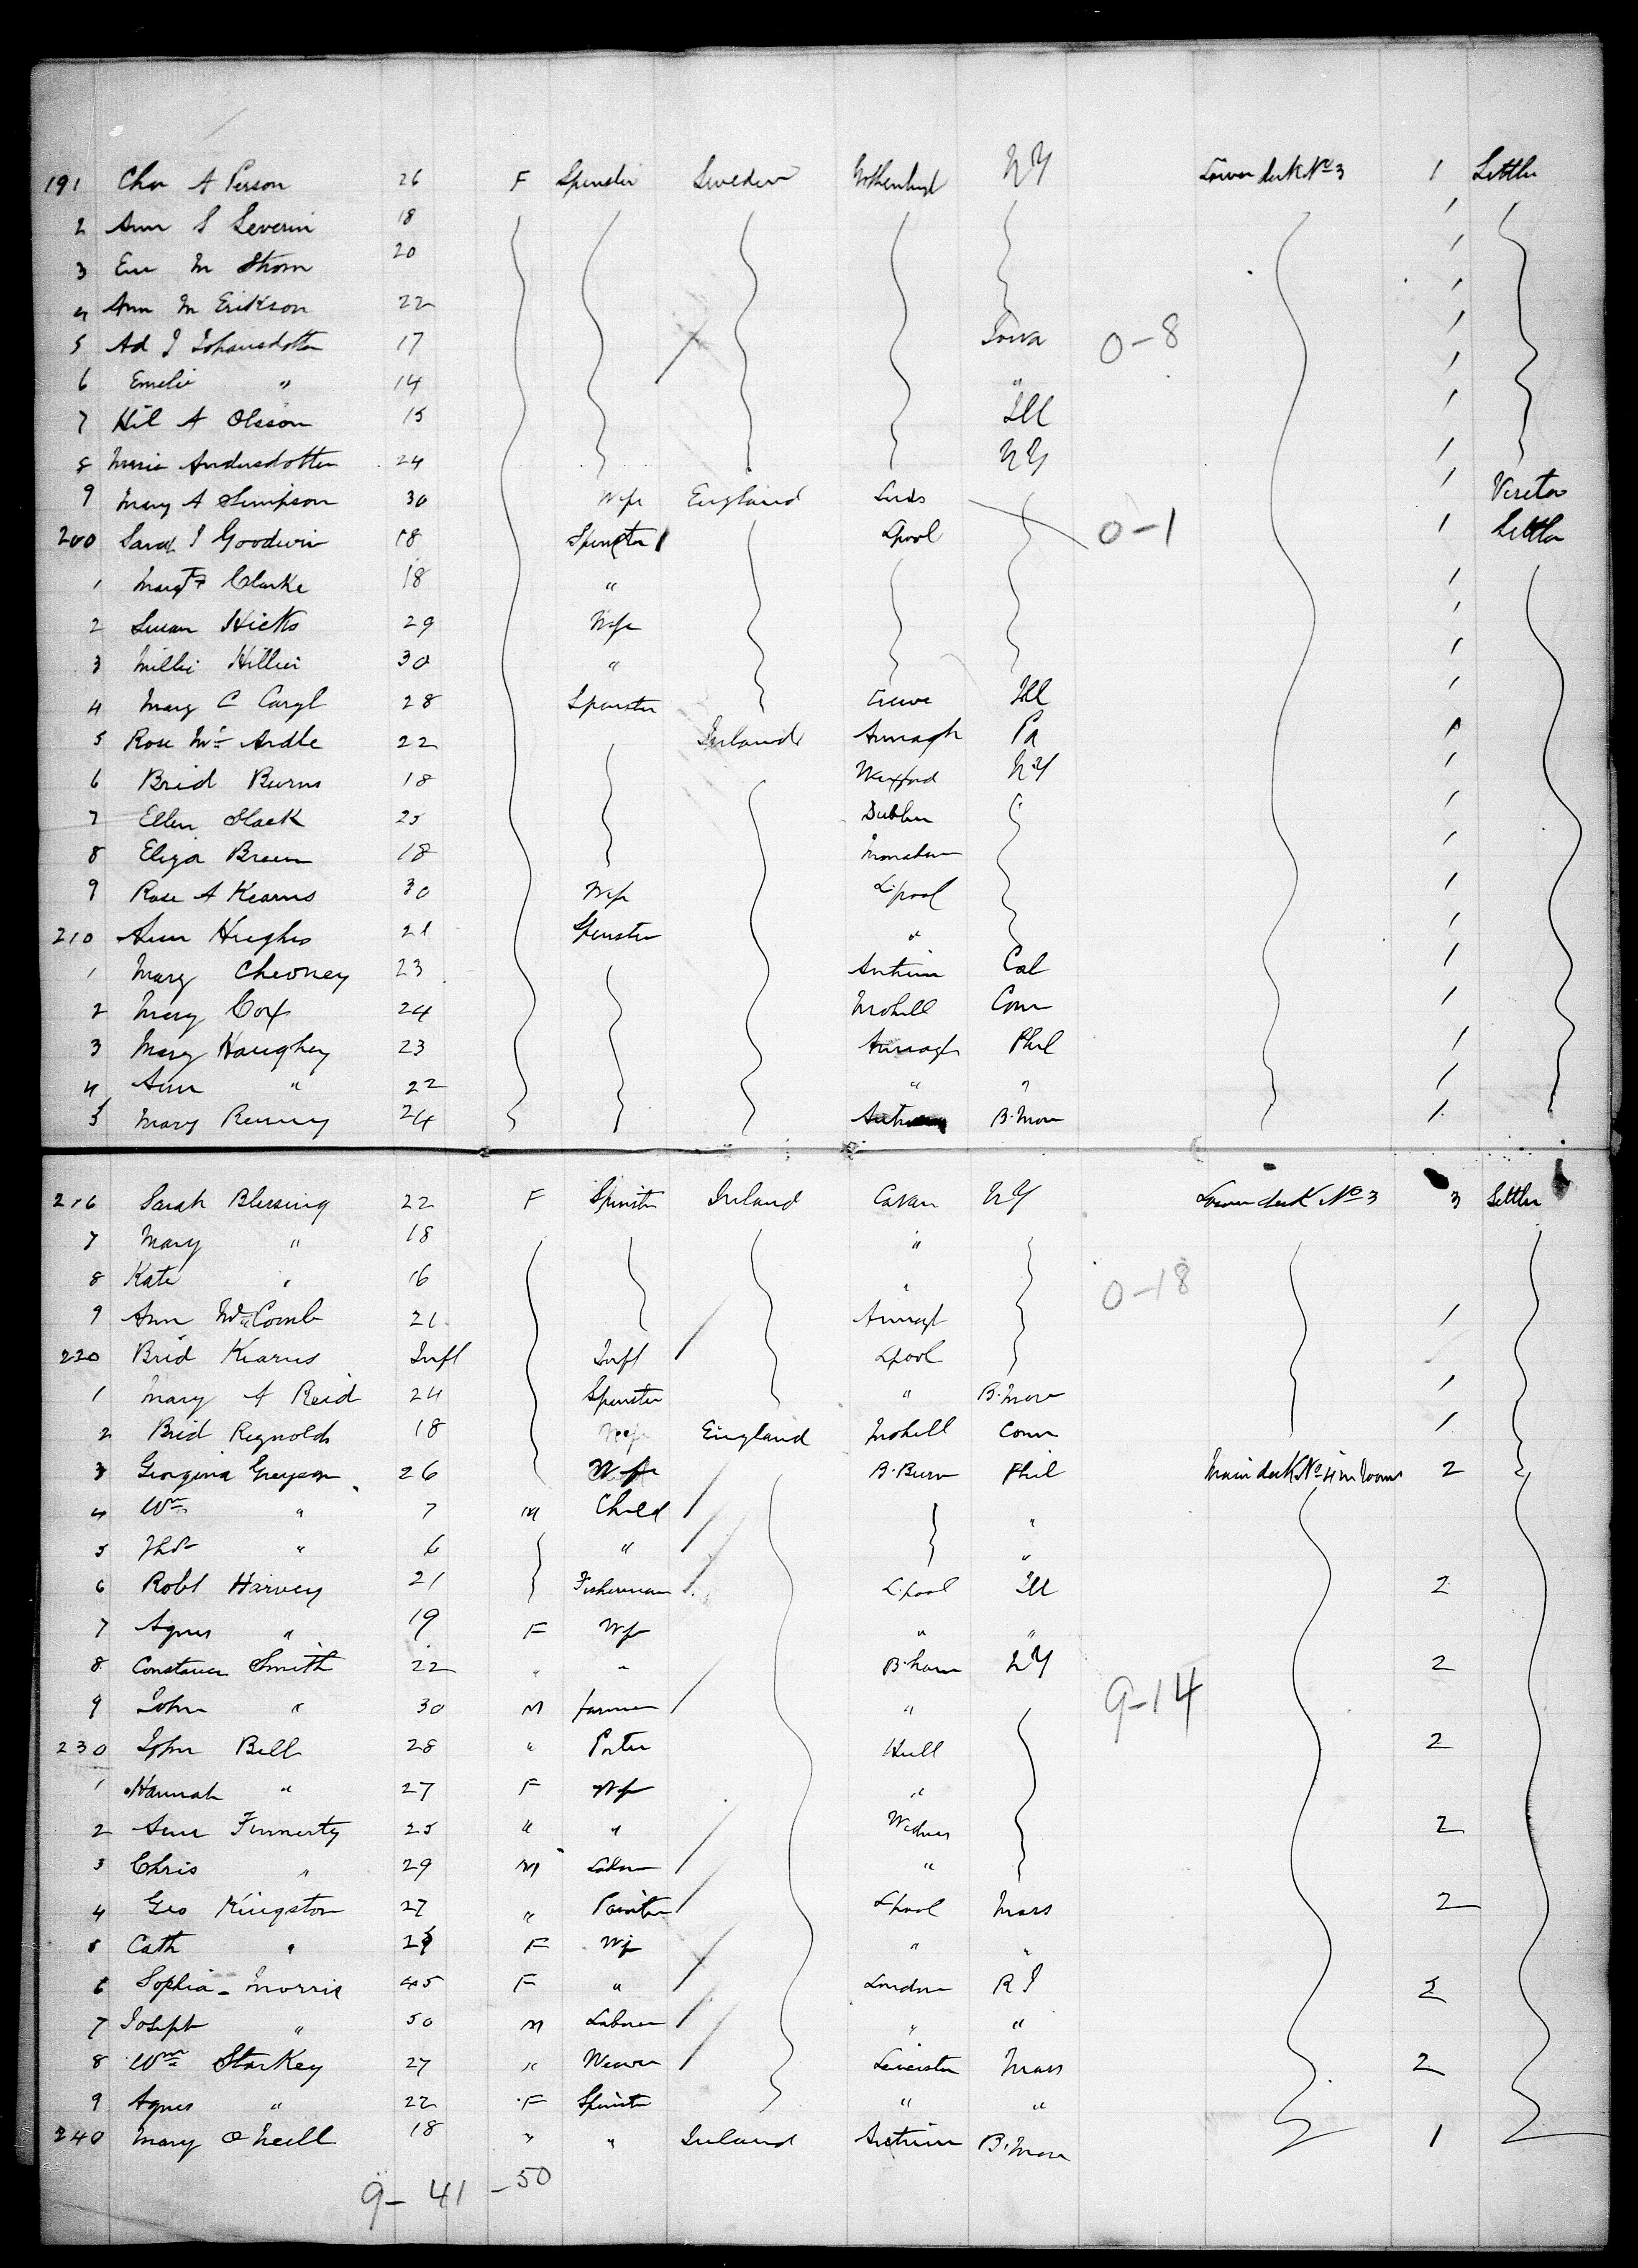 191 Char A Person 26 F Spinster Sweden Gothenburg N Y Lower deck No 3 1 Settler
2 Ann S Severin 18 1
3 Em M Strom 20 1
4 Ann M Erikson 22 1
5 Ad J Johansdotter 17 Iowa 0-8 1
6 Emelie " 14 " 1
7 Hil A Olsson 15 Ill 1
8 Maria Andersdotter 24 N Y 1
9 Mary A Simpson 30 Wife England Leeds 1 Visitor
200 Sarah J Goodwin 18 Spinster Lpool 0-1 1 Settler
1 Margt Clarke 18 " 1
2 Susan Hicks 29 Wife 1
3 Millie Hillier 30 " 1
4 Mary C Caryl 28 Spinster Crewe Ill 1
5 Rose Mc Ardle 22 Ireland Armagh Pa 1
6 Brid Burns 18 Wexford N Y 1
7 Ellen Slack 25 Dublin 1
8 Eliza Breen 18 Monahan 1
9 Rose A Kearns 30 Wife L'pool 1
210 Ann Hughes 21 Spinster " 1
1 Mary Chevney 23 Antrim Cal 1
2 Mary Cox 24 Mohill Conn 1
3 Mary Haughey 23 Armagh Phil 1
4 Ann " 22 " " 1
5 Mary Reuny 24 B. More 1
216 Sarah Blessing 22 F Spinster Ireland Cavan N Y Lower deck No 3 3 Settler
7 Mary " 18 "
8 Kate " 16 " 0-18
9 Ann McComb 21 Armagh 1
220 Brid Kearns Inft Inft Lpool
1 Mary A Reid 24 Spinster " B. More 1
2 Brid Reynolds 18 England Mohill Conn 1
3 Georgina Grayson 26 Wife B. Burn Phil Main deck No 4 in rooms 2
4 Wm " 7 M Child "
5 Thos " 6 " "
6 Robt Harvey 21 Fisherman L'pool Ill 2
7 Agnes " 19 F Wife " "
8 Constance Smith 22 " " B. ham N Y 2
9 John " 30 M farmer " 9-14
230 John Bell 28 " Porter Hull 2
1 Hannah " 27 F Wife "
2 Ann Finnerty 25 " " Widnes 2
3 Chris " 29 M Labr "
4 Geo Kingston 27 " Painter L'pool Mass 2
5 Cath " F Wife " "
6 Sophia Morris 45 F " London R I 2
7 Joseph " 50 M Laborer " "
8 Wm Starkey 27 " Weaver Leicester Mass 2
9 Agnes " 22 F Spinster " "
240 Mary O Neill 18 " " Ireland Antrim B. More 1
9- 41 -50